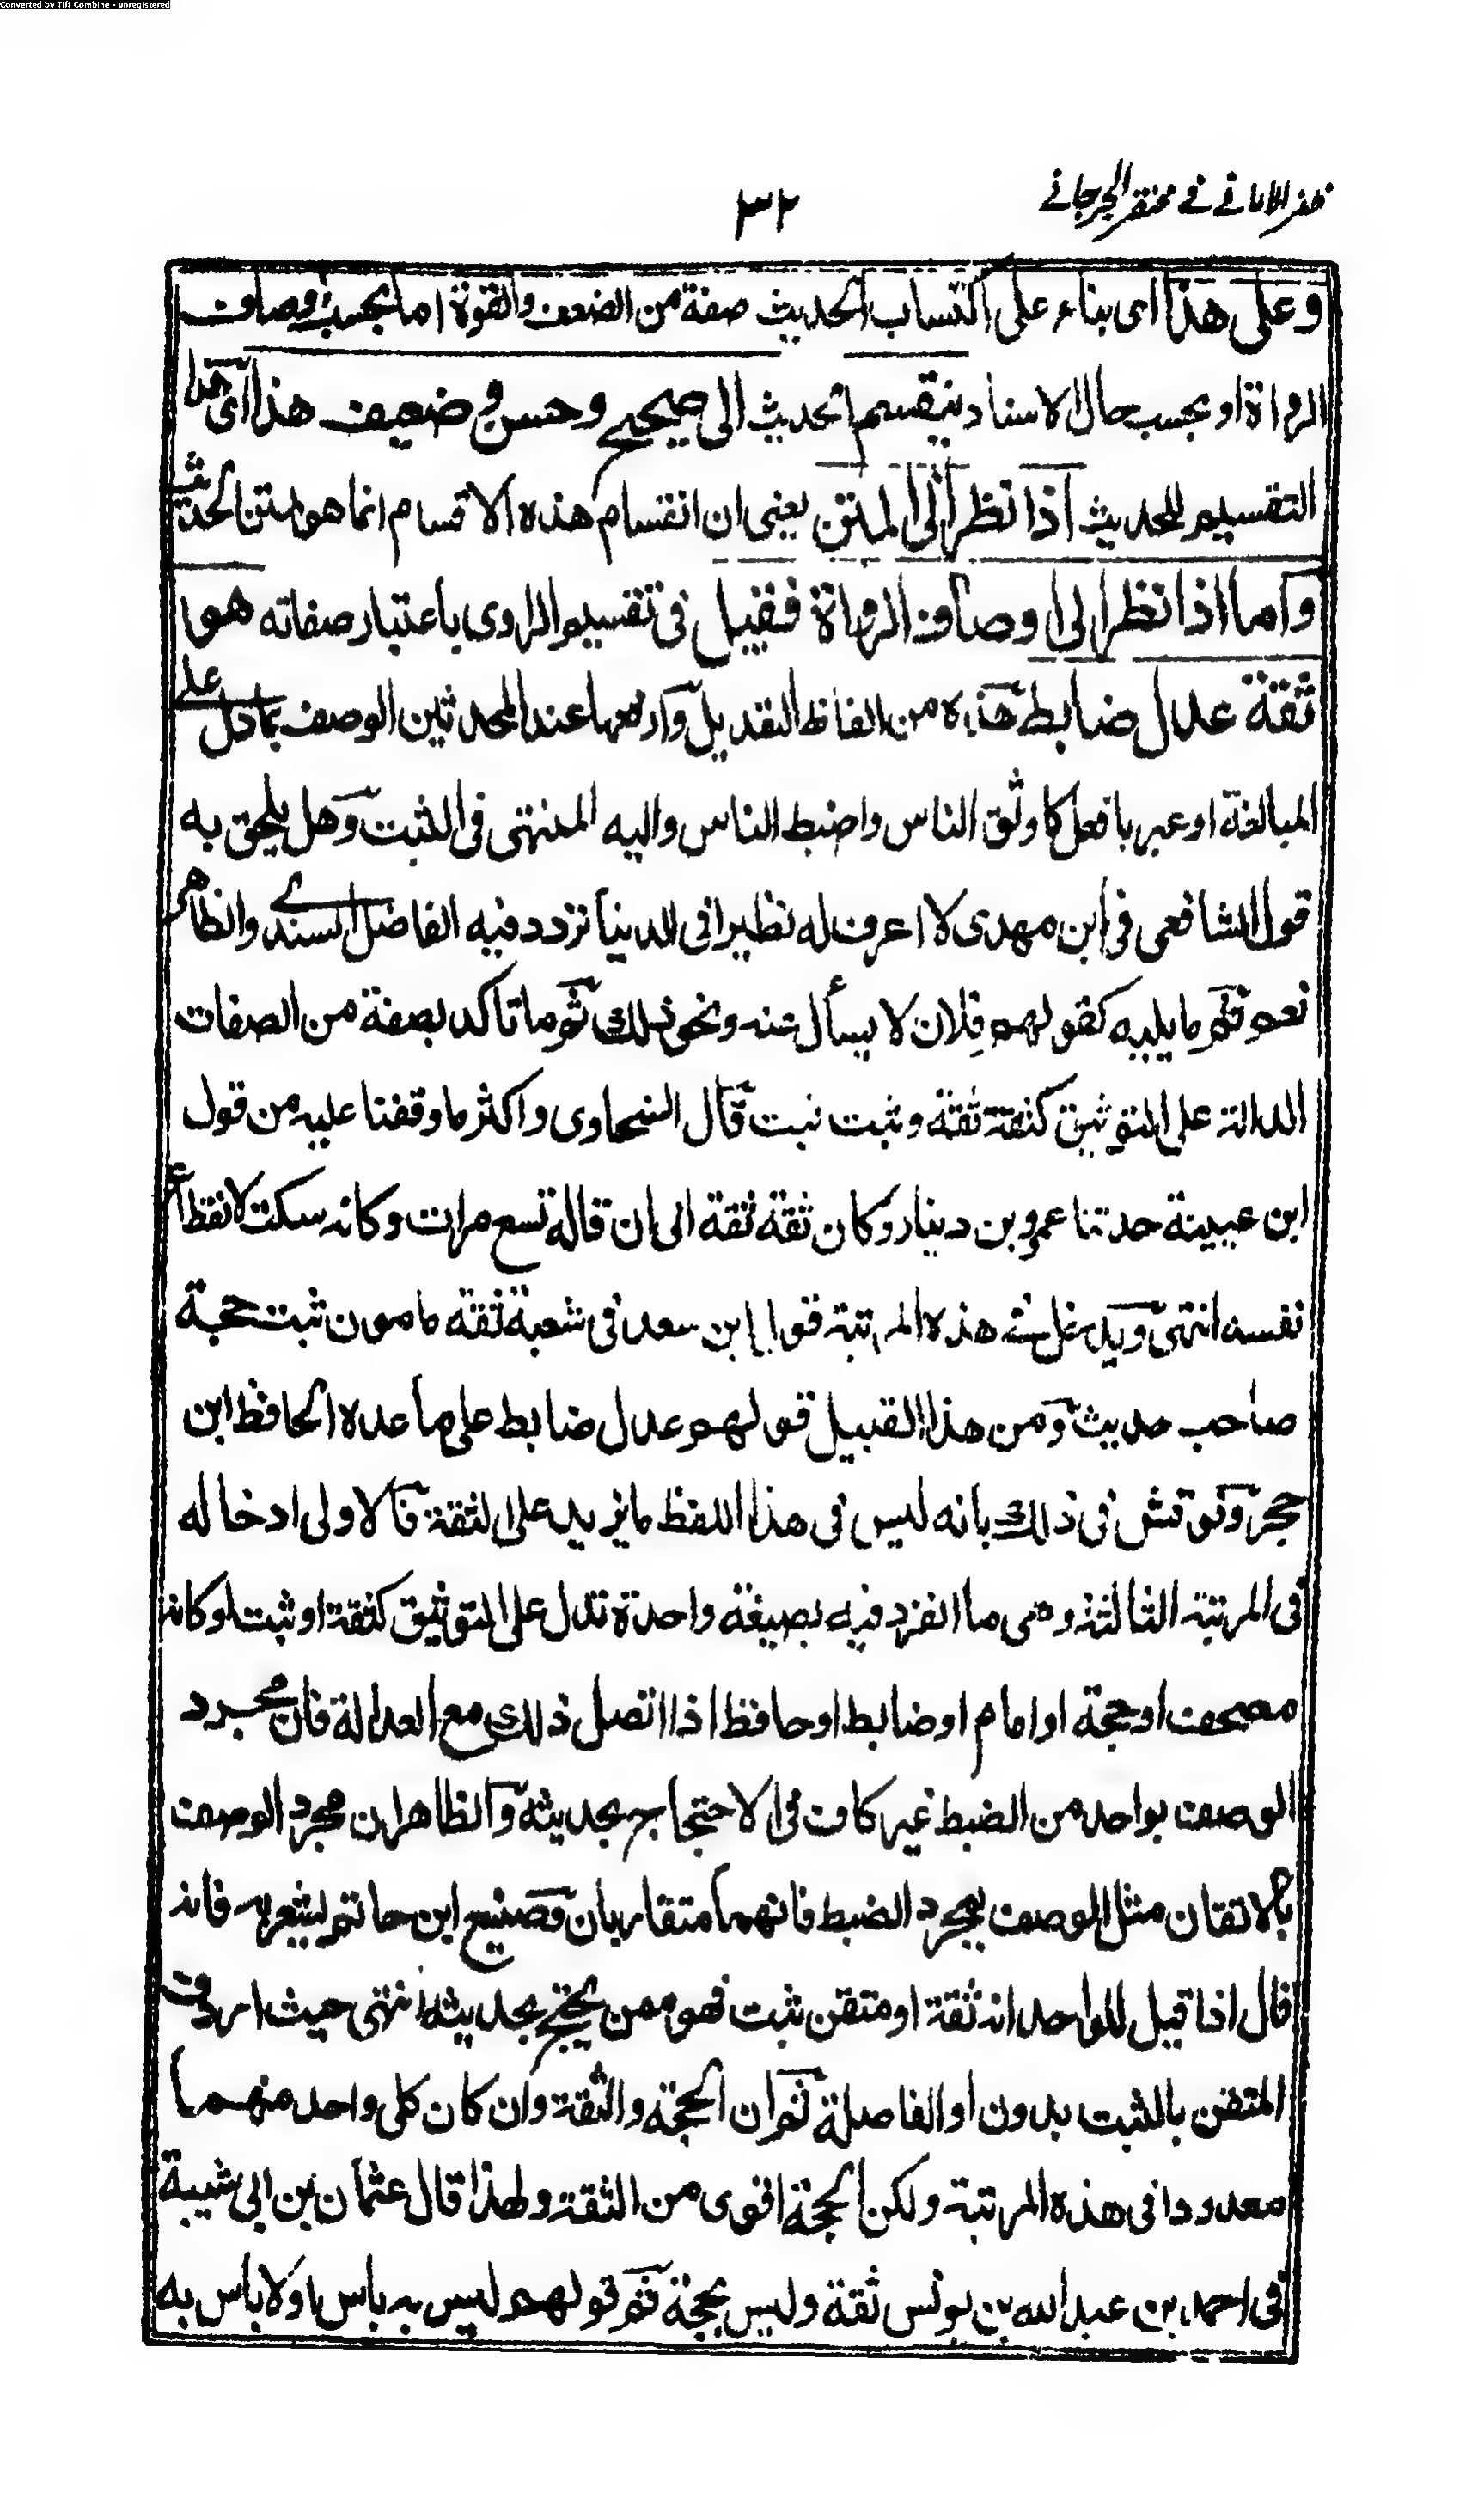 Converted by Tiff Combine - unregistered
ظفر الامانی فی مختصر الجرجانی
۳۲
وعلى هذا ای بناء على اکتساب الحدیث صفة من الضعف والقوة اما بحسب اوصاف
الرواة او بحسب حال الاسناد ینقسم الحدیث الى صحیح وحسن وضعیف هذا ای هذا
التقسیم للحدیث اذا نظر الى المتن یعنی ان انقسام هذه الاقسام انما هو لمتن الحدیث
واما اذا نظر الى اوصاف الرواة فقیل فی تقسیم الراوی باعتبار صفاته هو
ثقة عدل ضابط هذه من الفاظ التعدیل وارفعها عند المحدثین الوصف بما دل على
المبالغة او عبر بافعل کاوثق الناس واضبط الناس والیه المنتهى فی الثبت وهل یلحق به
قول الشافعی فی ابن مهدی لا اعرف له نظیرا فی الدنیا تردد فیه الفاضل السندی والظاهر
نعم ثم ما یلیه کقولهم فلان لا یسأل عنه ونحو ذلك ثم ما تاکد بصفة من الصفات
الدالة على التوثیق کثقة ثقة وثبت ثبت قال السخاوی واکثر ما وقفنا علیه من قول
ابن عیینة حدثنا عمرو بن دینار وکان ثقة ثقة الى ان قاله تسع مرات وکانه سکت لانقطاع
نفسه انتهى ویدخل فی هذه المرتبة قول ابن سعد فی شعبة ثقة مامون ثبت حجة
صاحب حدیث ومن هذا القبیل قولهم عدل ضابط على ما عده الحافظ ابن
حجر ونوقش فی ذلك بانه لیس فی هذا اللفظ ما یزید على الثقة فالاولى ادخاله
فی المرتبة الثالثة وهی ما انفرد فیه بصیغة واحدة تدل على التوثیق کثقة او ثبت او کانه
مصحف او حجة او امام او ضابط او حافظ اذا اتصل ذلك مع العدالة فان مجرد
الوصف بواحد من الضبط غیر کاف فی الاحتجاج بحدیثه والظاهر ان مجرد الوصف
بالاتقان مثل الوصف بمجرد الضبط فانهما متقاربان وصنیع ابن حاتم یشعر به فانه
قال اذا قیل للواحد انه ثقة او متقن ثبت فهو ممن یحتج بحدیثه انتهى حیث اردف
المتقن بالثبت بدون او الفاصلة ثم ان الحجة والثقة وان کان کل واحد منهما
معدودا فی هذه المرتبة ولکن الحجة اقوى من الثقة ولهذا قال عثمان بن ابی شیبة
فی احمد بن عبد الله بن یونس ثقة ولیس بحجة ثم قولهم لیس به باس او لا باس به